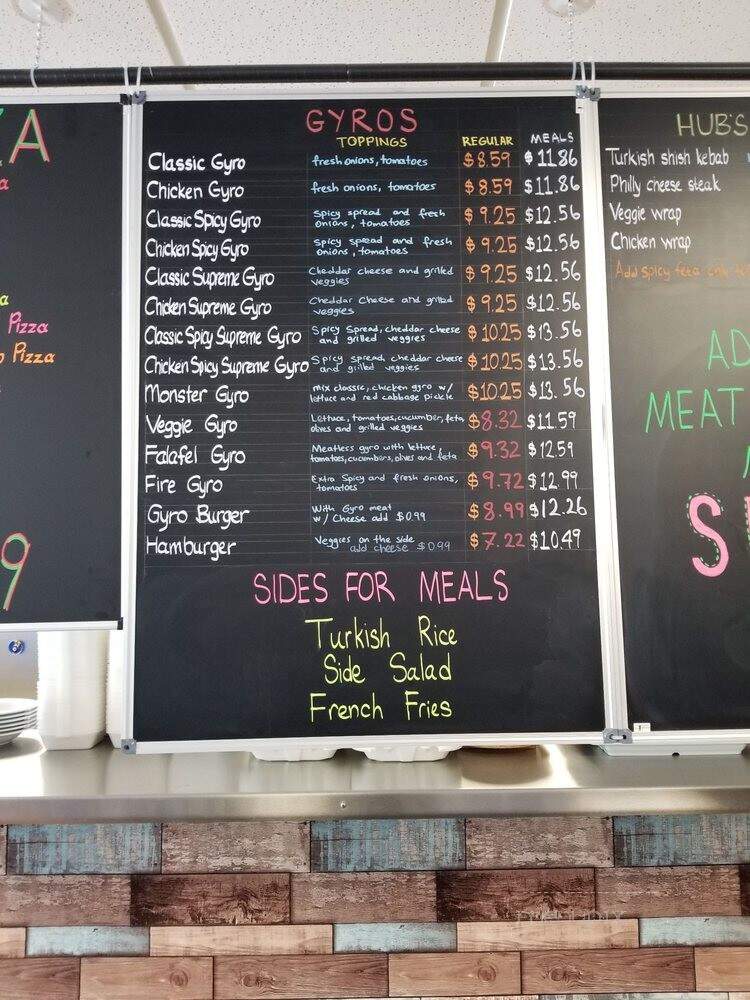 A
a
a
Pizza
Pizza
9
GYROS
TOPPINGS REGULAR MEALS
Classic Gyro fresh onions, tomatoes $8.59 $11.86
Chicken Gyro fresh onions, tomatoes $8.59 $11.86
Classic Spicy Gyro Spicy spread and fresh onions, tomatoes $9.25 $12.56
Chicken Spicy Gyro Spicy spread and fresh onions, tomatoes $9.25 $12.56
Classic Supreme Gyro Cheddar cheese and grilled veggies $9.25 $12.56
Chicken Supreme Gyro Cheddar Cheese and grilled veggies $9.25 $12.56
Classic Spicy Supreme Gyro Spicy Spread, cheddar cheese and grilled veggies $10.25 $13.56
Chicken Spicy Supreme Gyro Spicy spread, cheddar cheese and grilled veggies $10.25 $13.56
Monster Gyro mix classic, chicken gyro w/ lettuce and red cabbage pickle $10.25 $13.56
Veggie Gyro Lettuce, tomatoes, cucumber, feta, olives and grilled veggies $8.32 $11.59
Falafel Gyro Meatless gyro with lettuce, tomatoes, cucumbers, olives and feta $9.32 $12.59
Fire Gyro Extra Spicy and fresh onions, tomatoes $9.72 $12.99
Gyro Burger With Gyro meat w/ Cheese add $0.99 $8.99 $12.26
Hamburger Veggies on the side add cheese $0.99 $7.22 $10.49
SIDES FOR MEALS
Turkish Rice
Side Salad
French Fries
HUB'S
Turkish shish kebab
Philly cheese steak
Veggie wrap
Chicken wrap
Add spicy feta
AD
MEAT
S